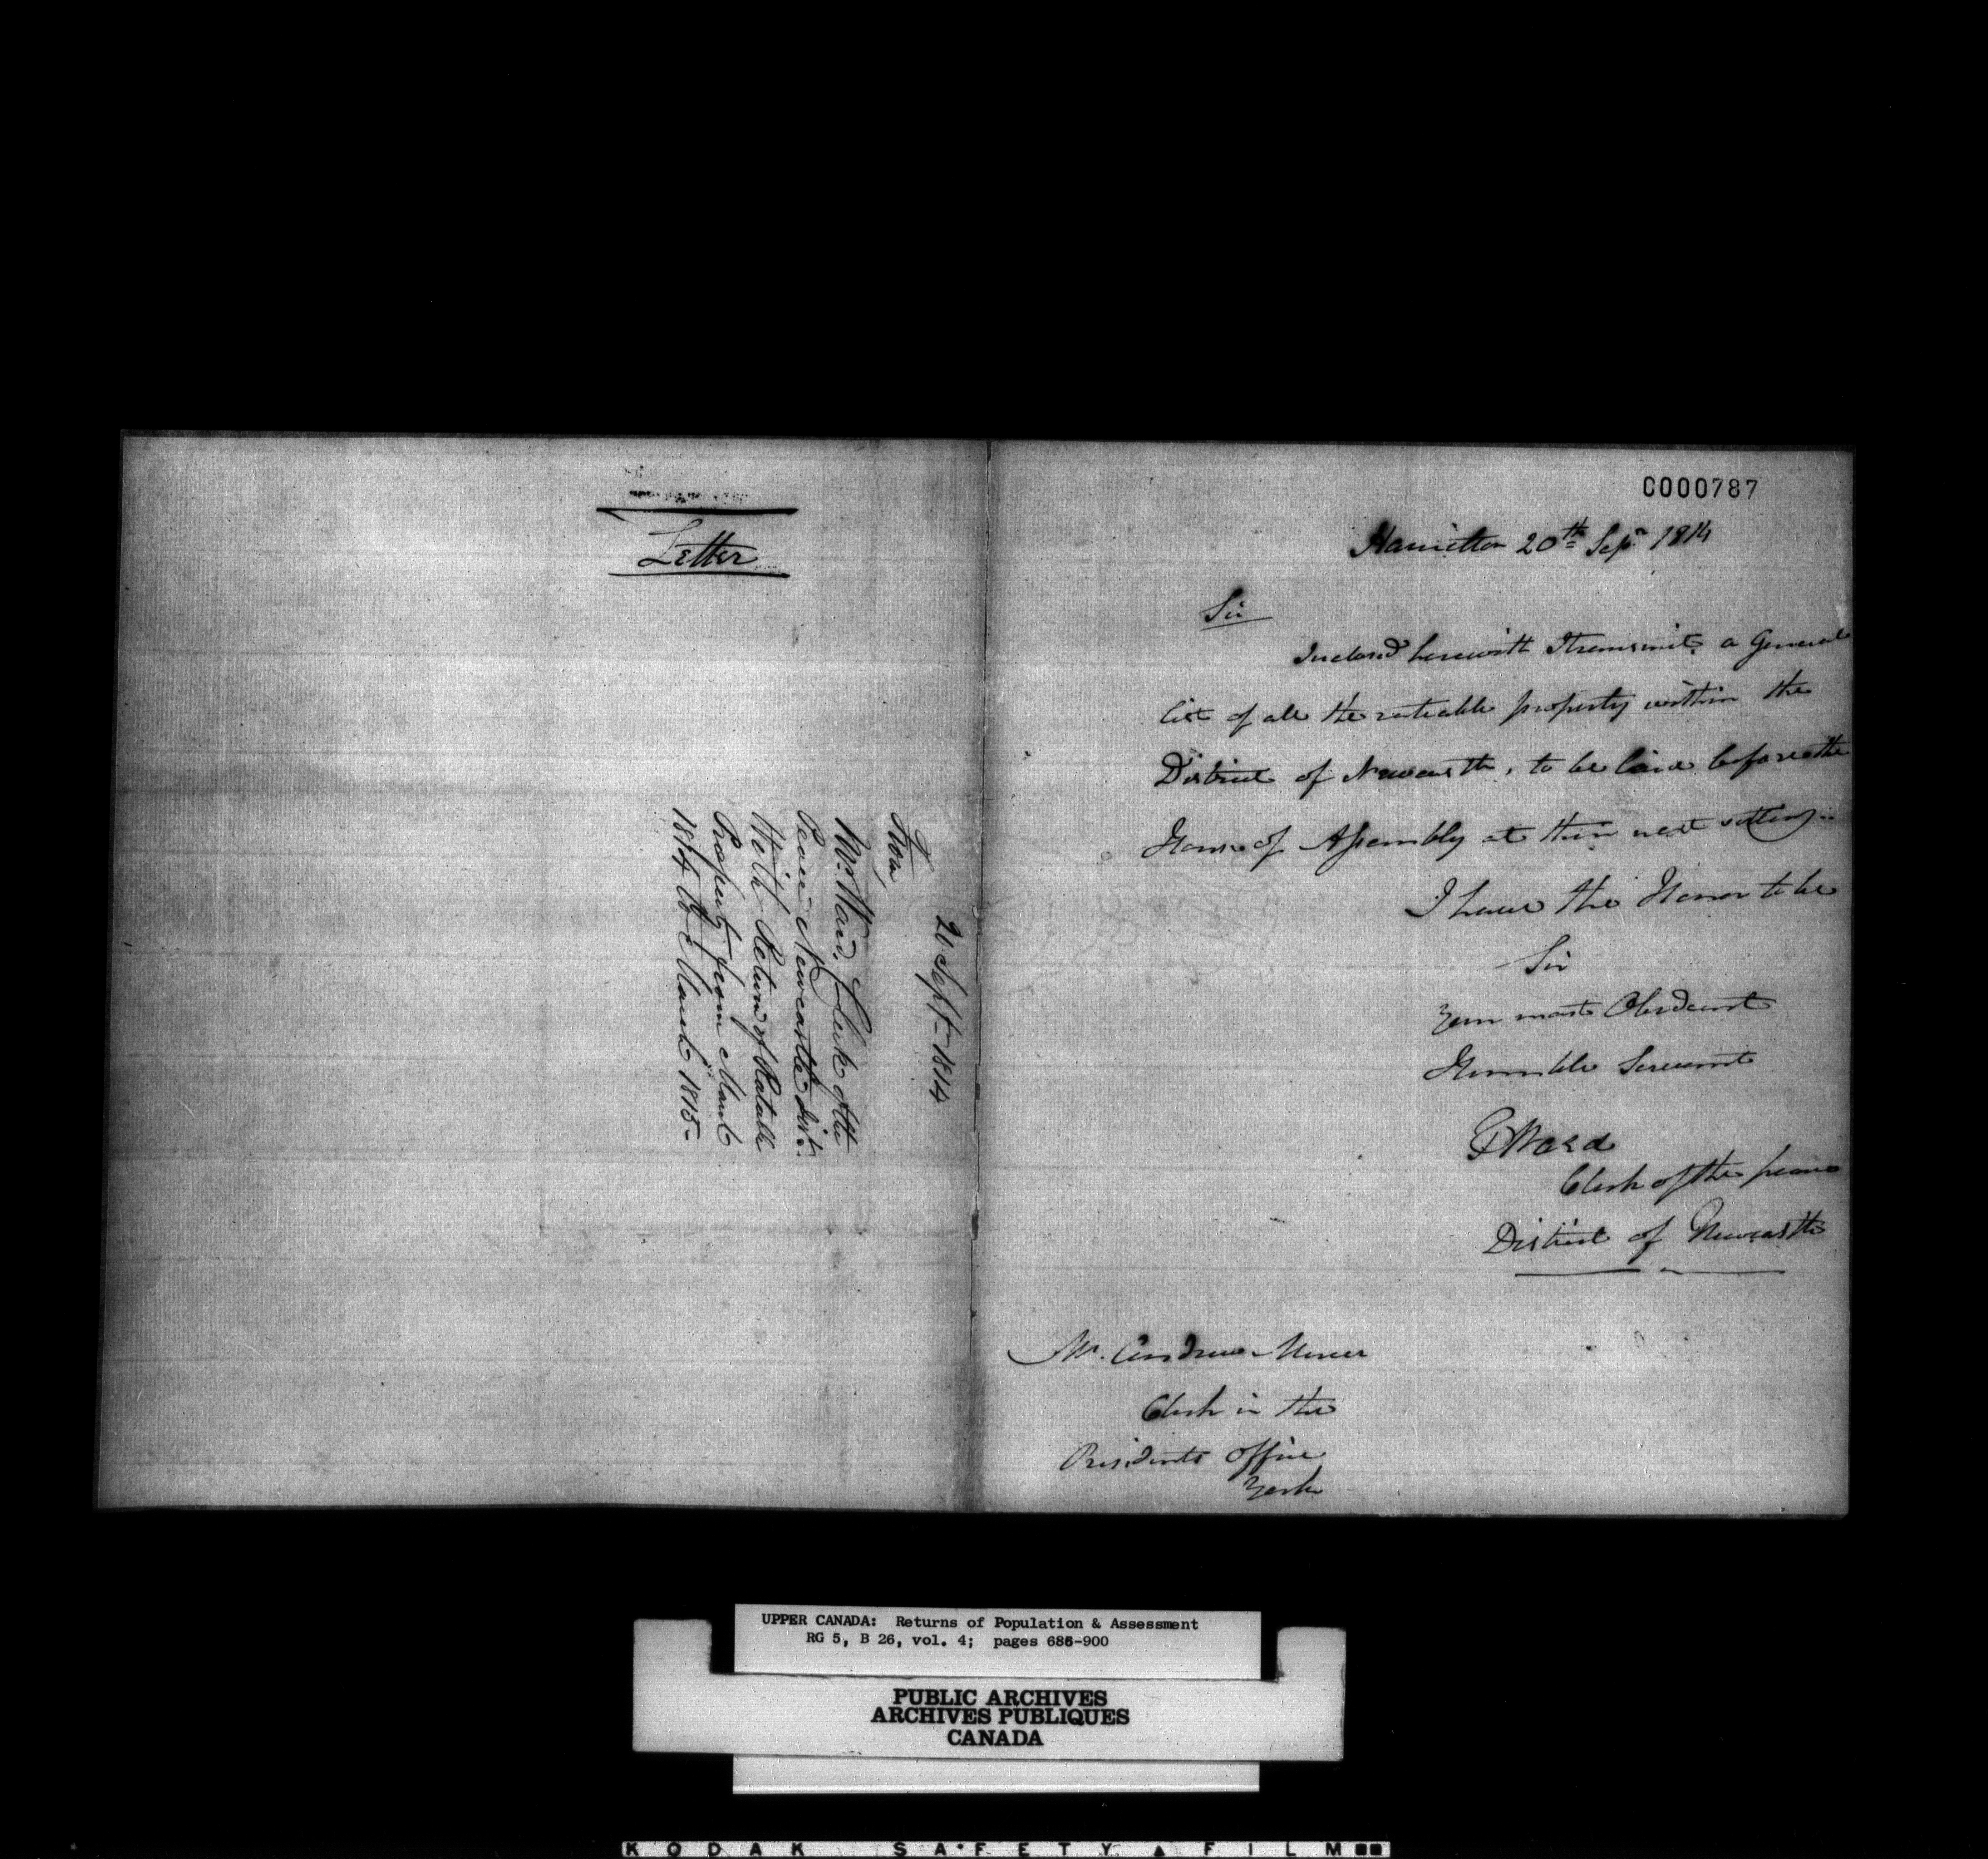 Letter
20 Sept- 1814
From
Mr. Ward, Clerk of the
Peace Newcastle Dist.
With Return of Ratable
Property from March
1814 to March 1815-
C000787
Hamilton 20th Sepr 1814
Sir
Inclosed herewith I transmit a General
list of all the rateable property within the
District of Newcastle, to be laid before the
House of Assembly at their next sitting..
I have the Honor to be
Sir
Your most Obedient
Humble Servant
Ward
Clerk of the peace
District of Newcastle
Mr. Andrew Mercer
Clerk in the
Presidents office
York
UPPER CANADA: Returns of Population & Assessment
RG 5, B 26, vol. 4; pages 686-900
PUBLIC ARCHIVES
ARCHIVES PUBLIQUES
CANADA
KODAK SAFETY FILM